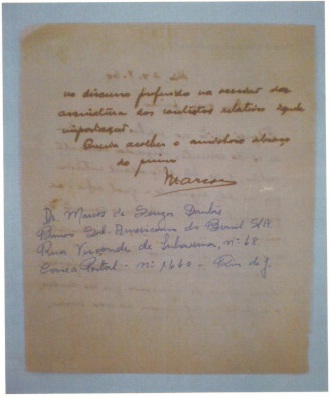 no discurso proferido na ocasião das
assinatura dos contratos relativos
importação.
Queira acolher o amistoso abraço
do primo
Marcos
Dr. Marcos de Souza Dantas
Banco Sul-Americano do Brasil S/A
Rua Visconde de Inhauma, nº 68
Caixa Postal - nº 1660 - Rio de J.